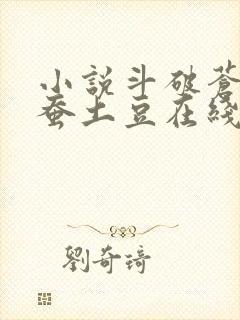 小說斗破蒼
蚕土豆在綫
劉奇琦